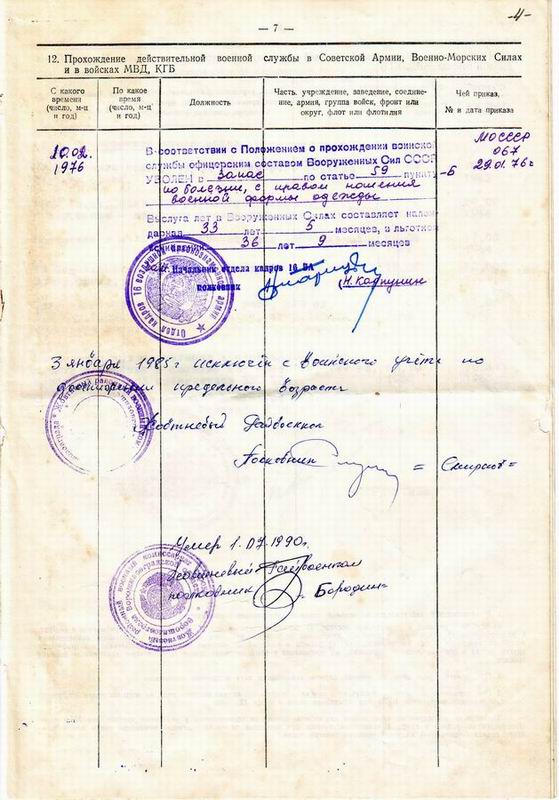 -4-
— 7 —
12. Прохождение действительной военной службы в Советской Армии, Военно-Морских Силах
и в войсках МВД, КГБ
С какого
времени
(число, м-ц
и год)
По какое
время
(число, м-ц
и год)
Должность
Часть, учреждение, заведение, соедине-
ние, армия, группа войск, фронт или
округ, флот или флотилия
Чей приказ,
№ и дата приказа
10.02.
1976
В соответствии с Положением о прохождении воинско
службы офицерским составом Вооруженных Сил СССР
УВОЛЕН в запас по статье 59 пункту -Б
по болезни, с правом ношения
военной формы одежды
Выслуга лет в Вооруженных Силах составляет кален-
дарная 33 лет 5 месяцев, в льготн
исчислении 36 лет 9 месяцев
МО СССР
067
29.01.76 г
зам. Начальник отдела кадров 16 ВА
полковник Н. Карпунин
Отдел кадров 16 воздушной краснознаменной армии
3 января 1985 г исключён с воинского учёта по
достижении предельного возраста
Полковник = Смирнов =
Умер 1.07.1990г.
полковник Бородин